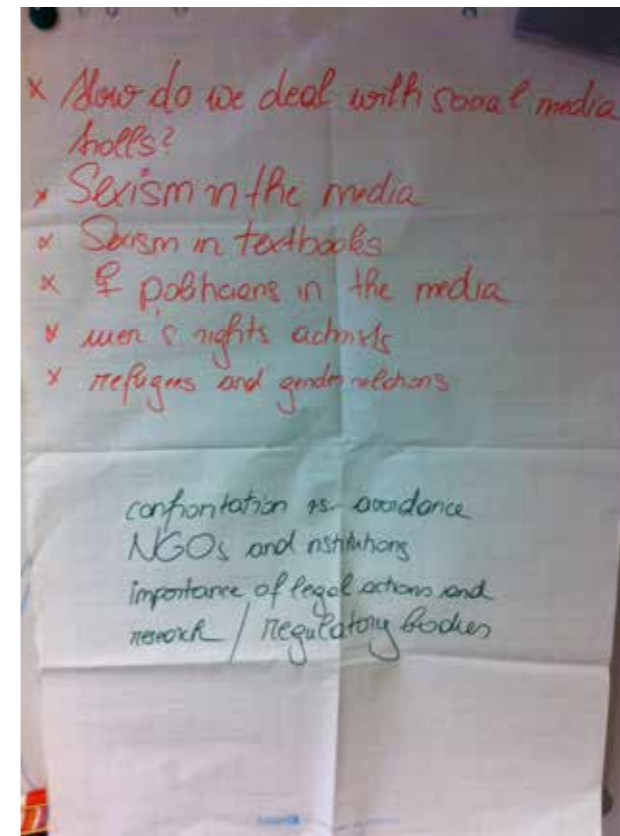 × How do we deal with social media
trolls?
× Sexism in the media
× Sexism in textbooks
× ♀ politicians in the media
× men's rights activists
× refugees and gender relations
confrontation vs. avoidance
NGOs and institutions
importance of legal actions and
research / regulatory bodies